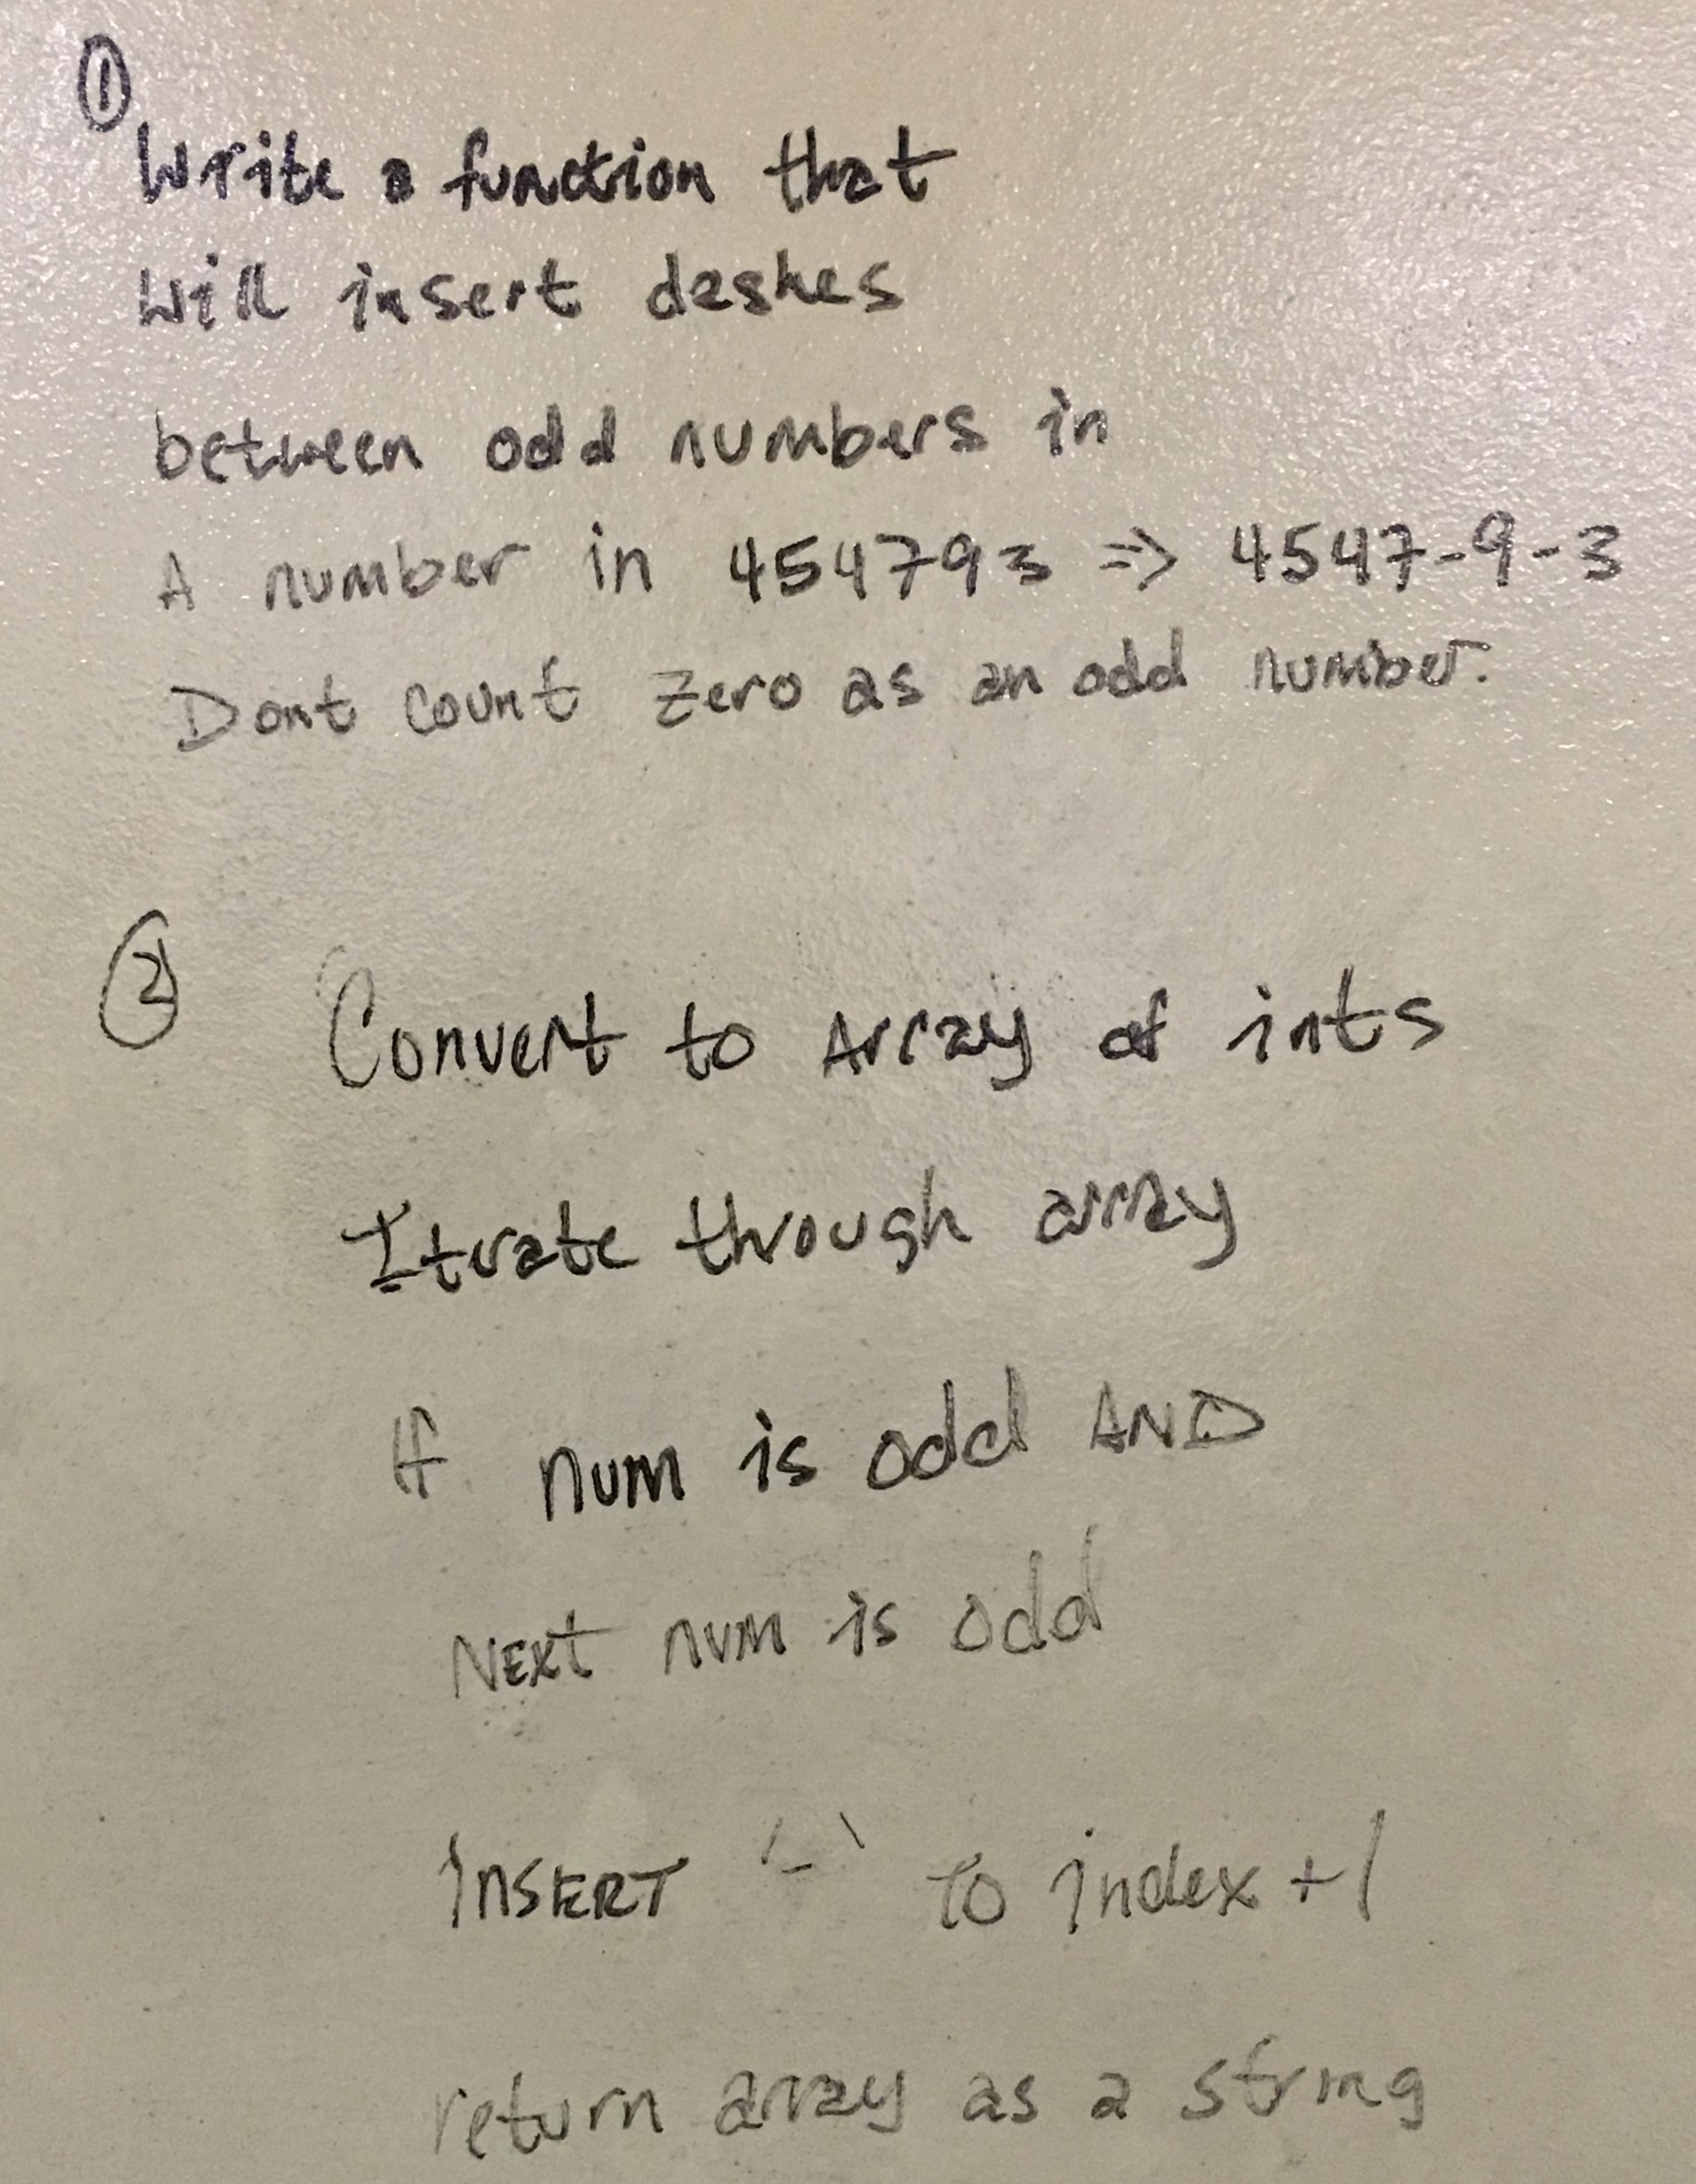 ①
Write a function that
will insert dashes
between odd numbers in
A number in 454793 => 4547-9-3
Dont count zero as an odd number.
②
Convert to Array of ints
Iterate through array
If num is odd AND
NEXT num is odd
INSERT '-' to index +1
return array as a string